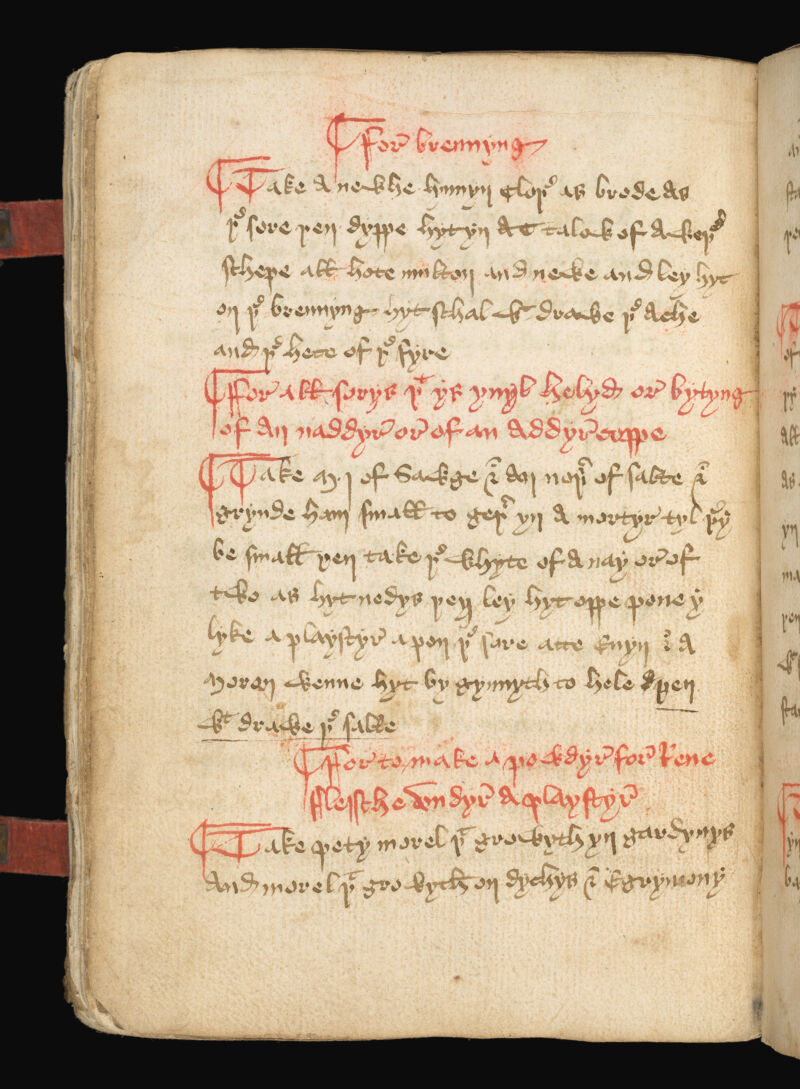 ¶ For brennyng
¶ Take A newhe lynnyn cloþ as brode as
þe sore þen dyppe hyt yn At talow of A weþer
schepe all hote multon and newe and ley hyt
on þe brennyng hyt schal wt drawe þe Ache
and þe hete of þe fyre
¶ For all sorys þt ys yuyl helyd or bytyng
of An naddyr or of an Addyrcoppe
¶ Take M j of Sawge & An noþer of salte &
grynde ham small to geþer yn A mortyr tyl þey
be small þen take þe whyte of A nay or of
two as hyt nedys þen ley hyt oppe pone y
lyke A playstyr A pon þe sore atte Euyn & A
Moron wenne hyt by gynnyth to hele þen
wt drawe þe salte
¶ For to make A powdyr for Rene
flessche vndyr A playstyr
¶ Take pety morel þt growyth yn gardynys
And morel þt growyth on dychys & Egrymony